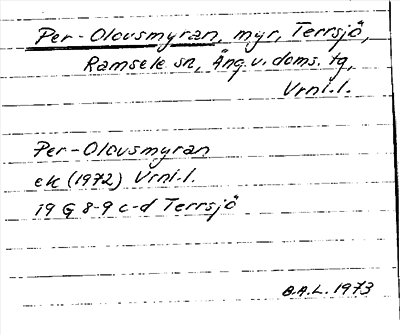 Per-Olovsmyran, myr, Terrsjö,
Ramsele sn, Äng.v. doms. tg,
Vrnl.l.
Per-Olovsmyran
ek (1972) Vrnl.l.
19 G 8-9 c-d Terrsjö
B.A.L. 1973